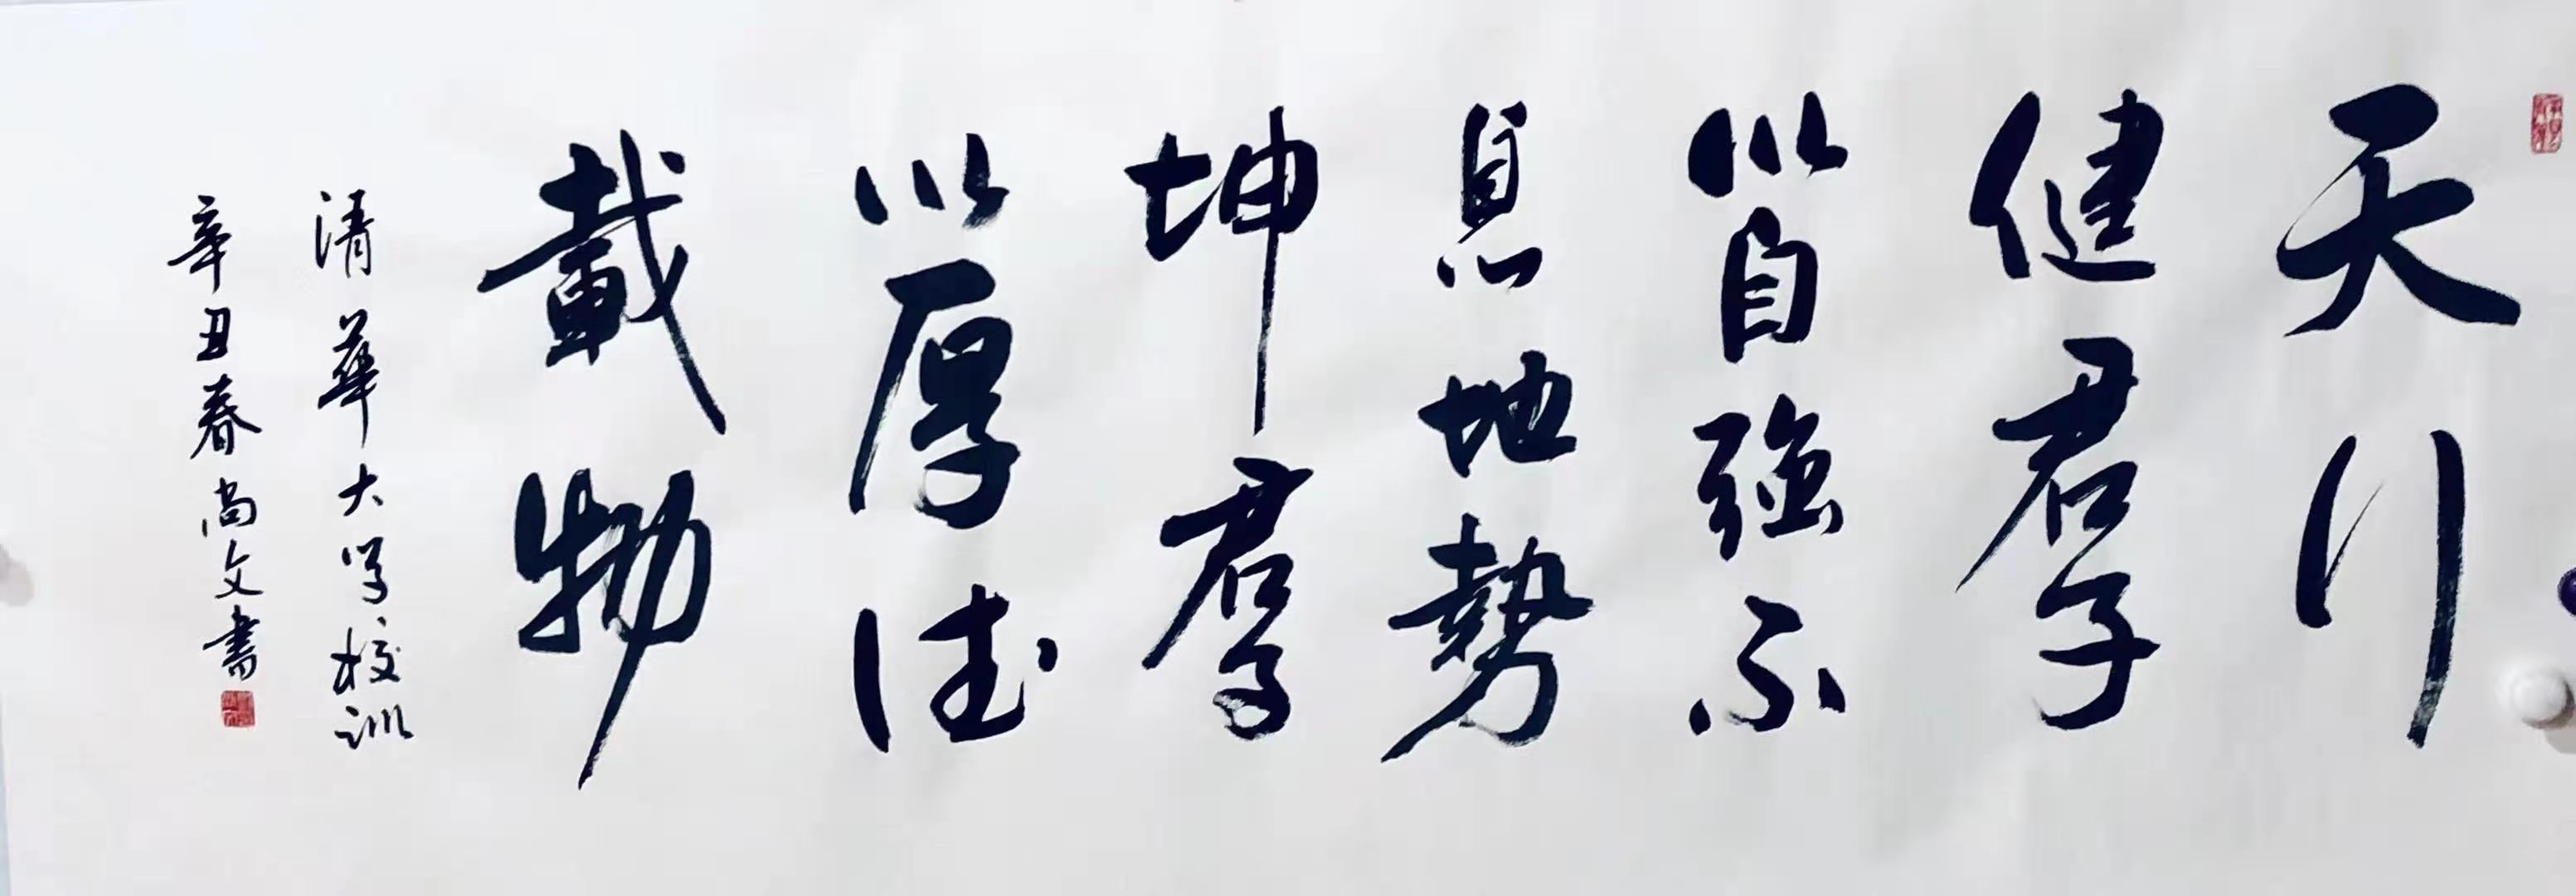 天行
健君子
以自強不
息地勢
坤君子
以厚德
載物
清華大学校訓
辛丑春尚文書